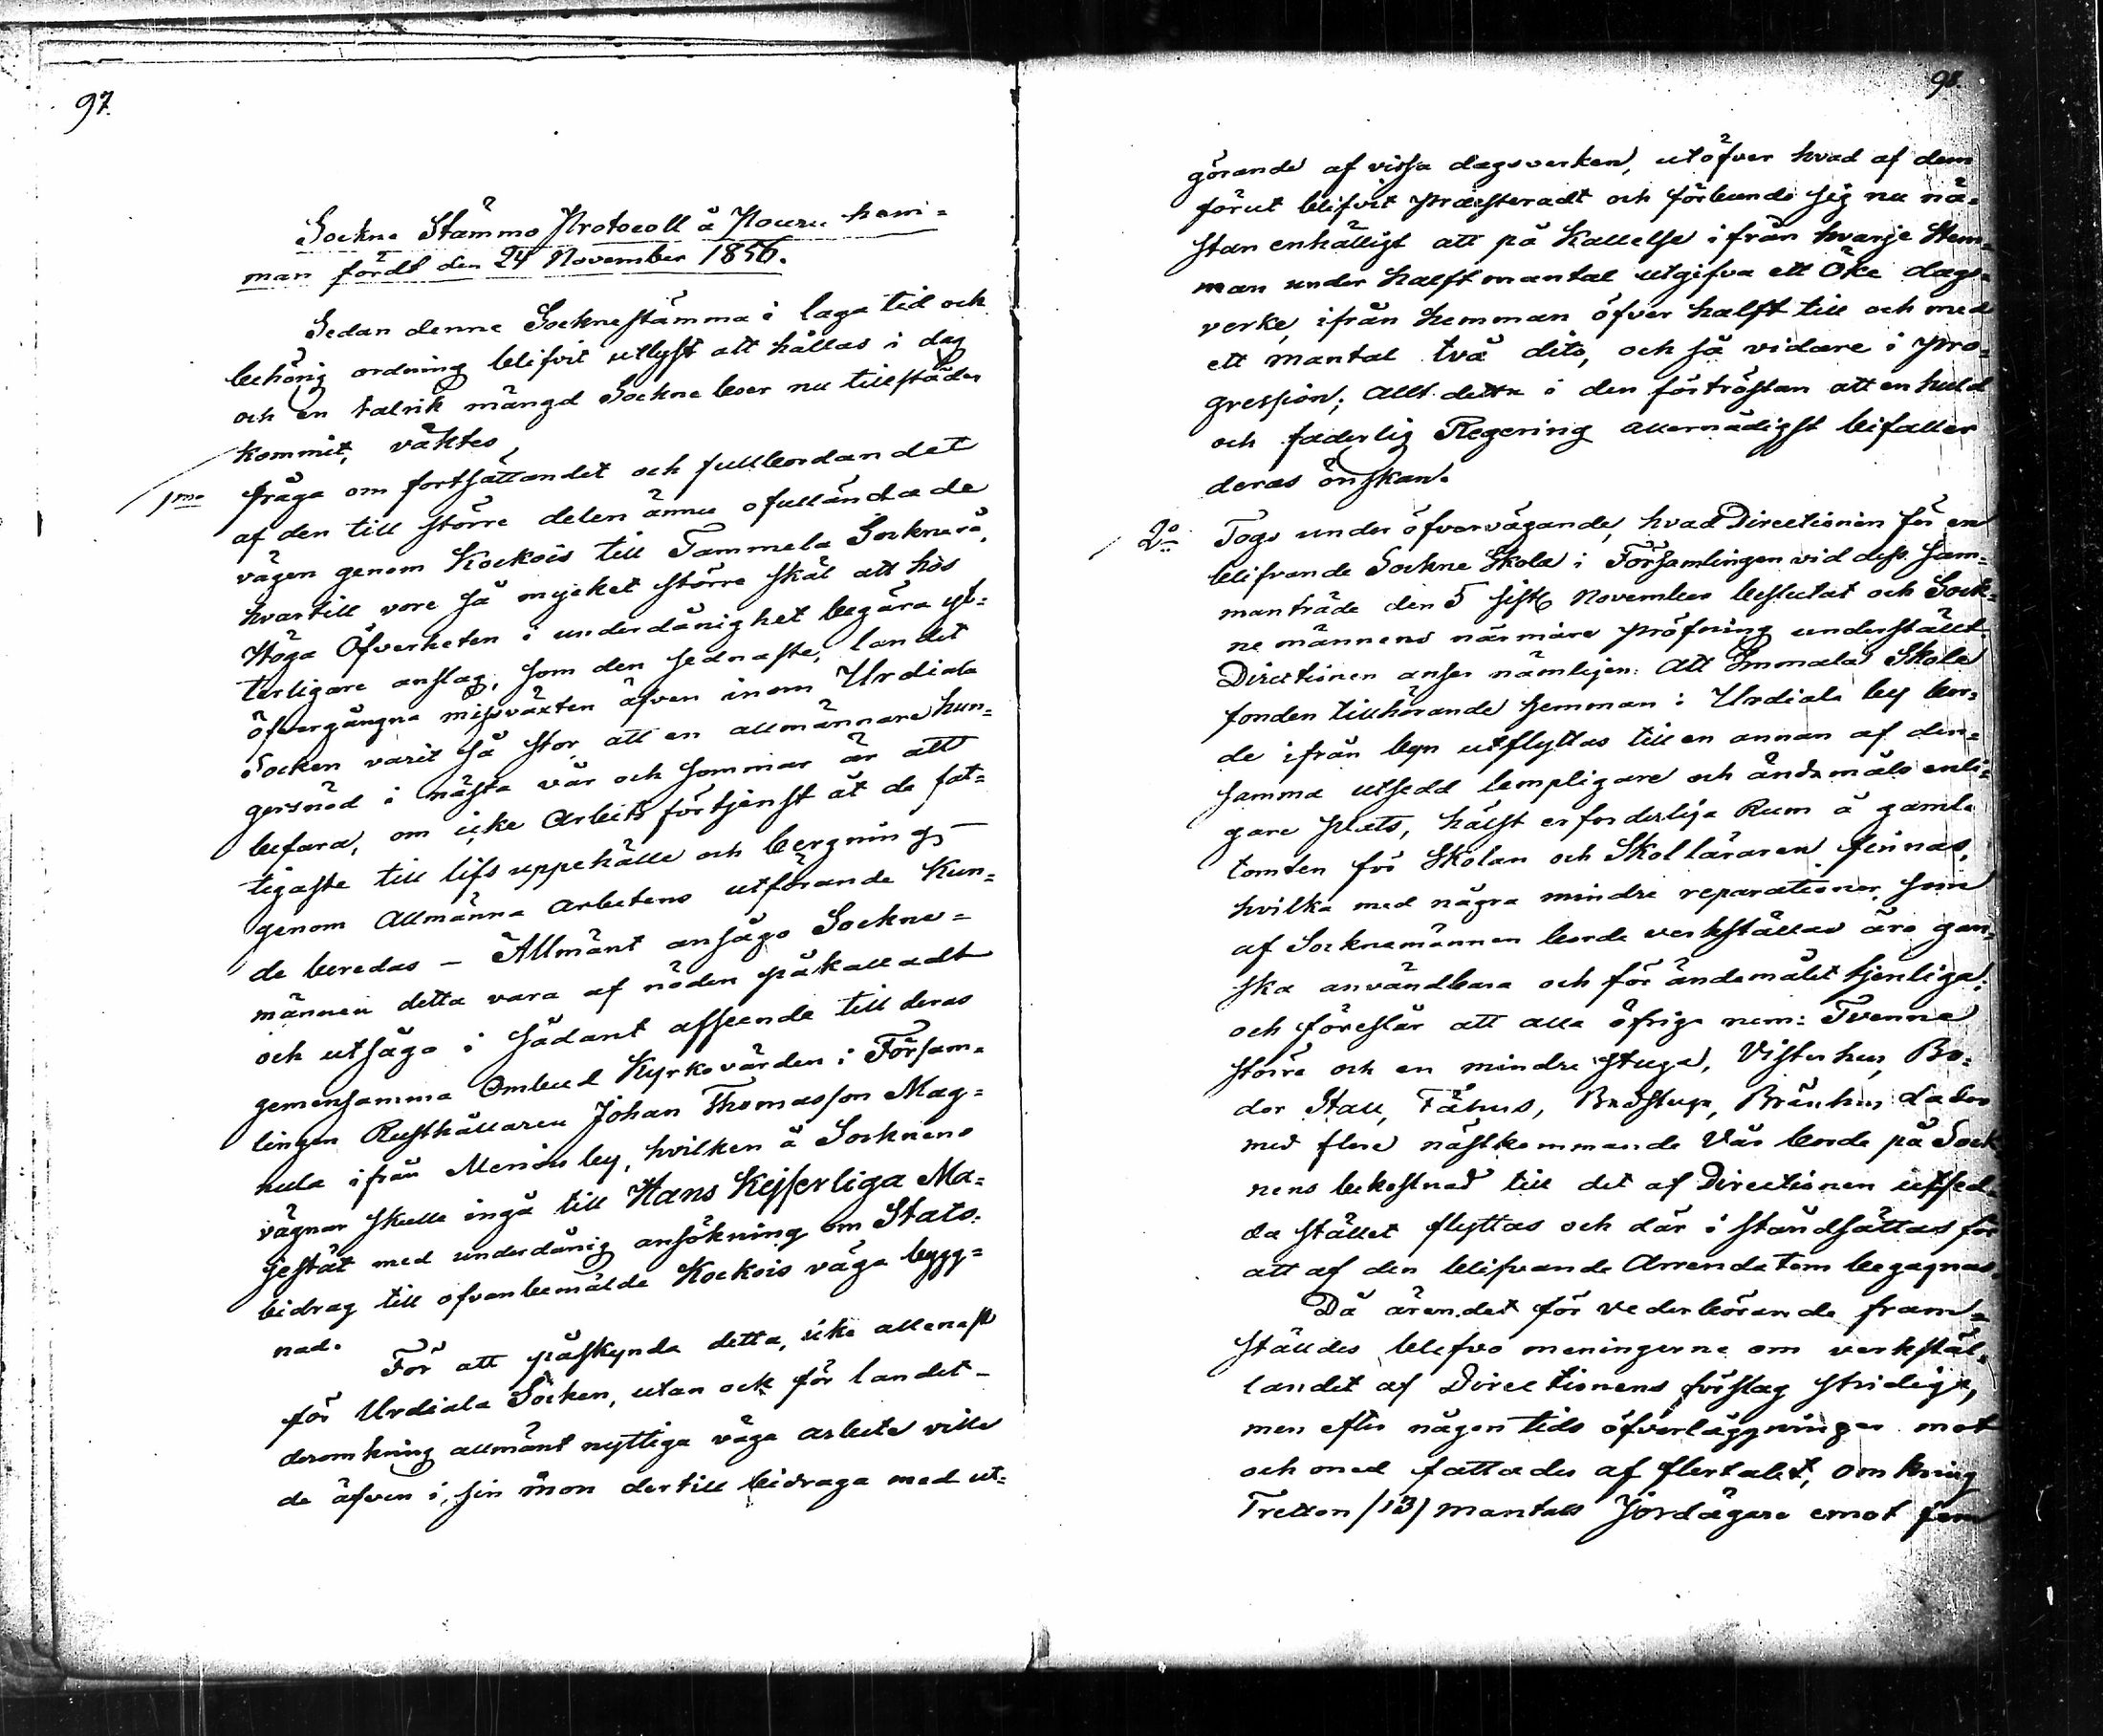 97.
Sockne Stämmo Protocoll å Nouru hem=
man fördt den 24 November 1856.
Sedan denne Socknestämma i laga tid och
behörig ordning blifvit utlyst att hållas i dag
och en talrik mängd Sockneboer nu tillstädes
kommit, väktes
1mo fråga om fortsättandet och fullbordandet
af den till större delen ännu ofulländade
vägen genom Kockois till Tammela Socknerå,
hvartill vore så mycket större skäl att hos
Höga Öfverheten i underdånighet begära yt=
terligare anslag, som den sednaste, landet
öfvergångna missväxten äfven inom Urdiala
Socken varit så stor att en allmännare hun=
gersnöd i nästa vår och sommar är att
befara, om icke Arbetsförtjenst åt de fat=
tigaste till lifs uppehälle och bergning
genom Allmänna arbetens utförande Kun=
de beredas – Allmänt ansågo Sockne=
männen detta vara af nöden påkalladt
och utsågo i sådant afseende till deras
gemensamma Ombud Kyrkovärden i Försam=
lingen Rusthållaren Johan Thomasson Mag=
hula ifrån Menois by, hvilken å Socknens
vägnar skulle ingå till Hans Kejserliga Ma=
jestät med underdånig ansökning om Stats=
bidrag till ofvanbemälde Kockois väga bygg=
nad.
För att påskynda detta, icke allenast
för Urdiala Socken, utan ock för landet
deromkring allmänt nyttiga väga arbete ville
de äfven i sin mon dertill bidraga med ut=
98.
görande af vissa dagsverken, utöfver hvad af dem
förut blifvit præsteradt och förbundo sig nu nä=
stan enhälligt att på Kallelse ifrån hvarje Hem=
man under halft mantal utgifva ett Öke dags=
verke, ifrån hemman öfver halft till och med
ett mantal två dito, och så vidare i pro=
gression; Allt detta i den förtröstan att en huld
och faderlig Regering allernådigst bifaller
deras önskan.
2o Togs under öfvervägande, hvad Directionen för en
blifvande Sockne Skola i Församlingen vid dess sam=
manträde den 5 sistl November beslutat och Sock=
nemännens närmare pröfning underställt.
Directionen anser nämligen: Att Emmala Skole
fonden tillhörande hemman i Urdiala by bor=
de ifrån byn utflyttas till en annan af den=
samma utsedd lempligare och ändamåls enli=
gare plats, hälst erforderliga Rum å gamla
tomten för Skolan och Skolläraren finnas,
hvilka med några mindre reparationer, som
af Socknemännen borde verkställas äro gan=
ska användbara och för ändamålet tjenliga;
och föreslår att alla öfriga nem: Tvenne
större och en mindre stuga, Visthus, Bo=
dor Stall, Fähus, Badstuga, Bränhus Lador
med flere nästkommande Vår borde på Sock
nens bekostnad till det af Directionen utsed=
da stället flyttas och där i ståndsättas för
att af den blifvande Arrendatorn begagnas.
Då ärendet för vederbörande fram=
ställdes blefvo meningerne om verkstäl=
landet af Directionens förslag stridiga,
men efter någon tids öfverläggningar mot
och med fattades af flertalet, omkring
Tretton /13/ mantals Jordägare emot fem